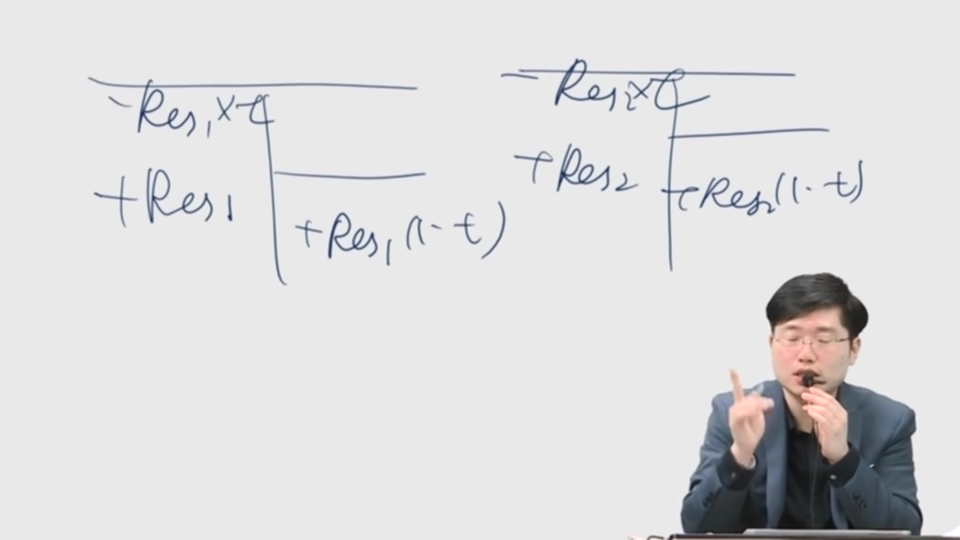 -Res₁×t
+Res₁
+Res₁(1-t)
-Res₂×t
+Res₂
+Res₂(1-t)